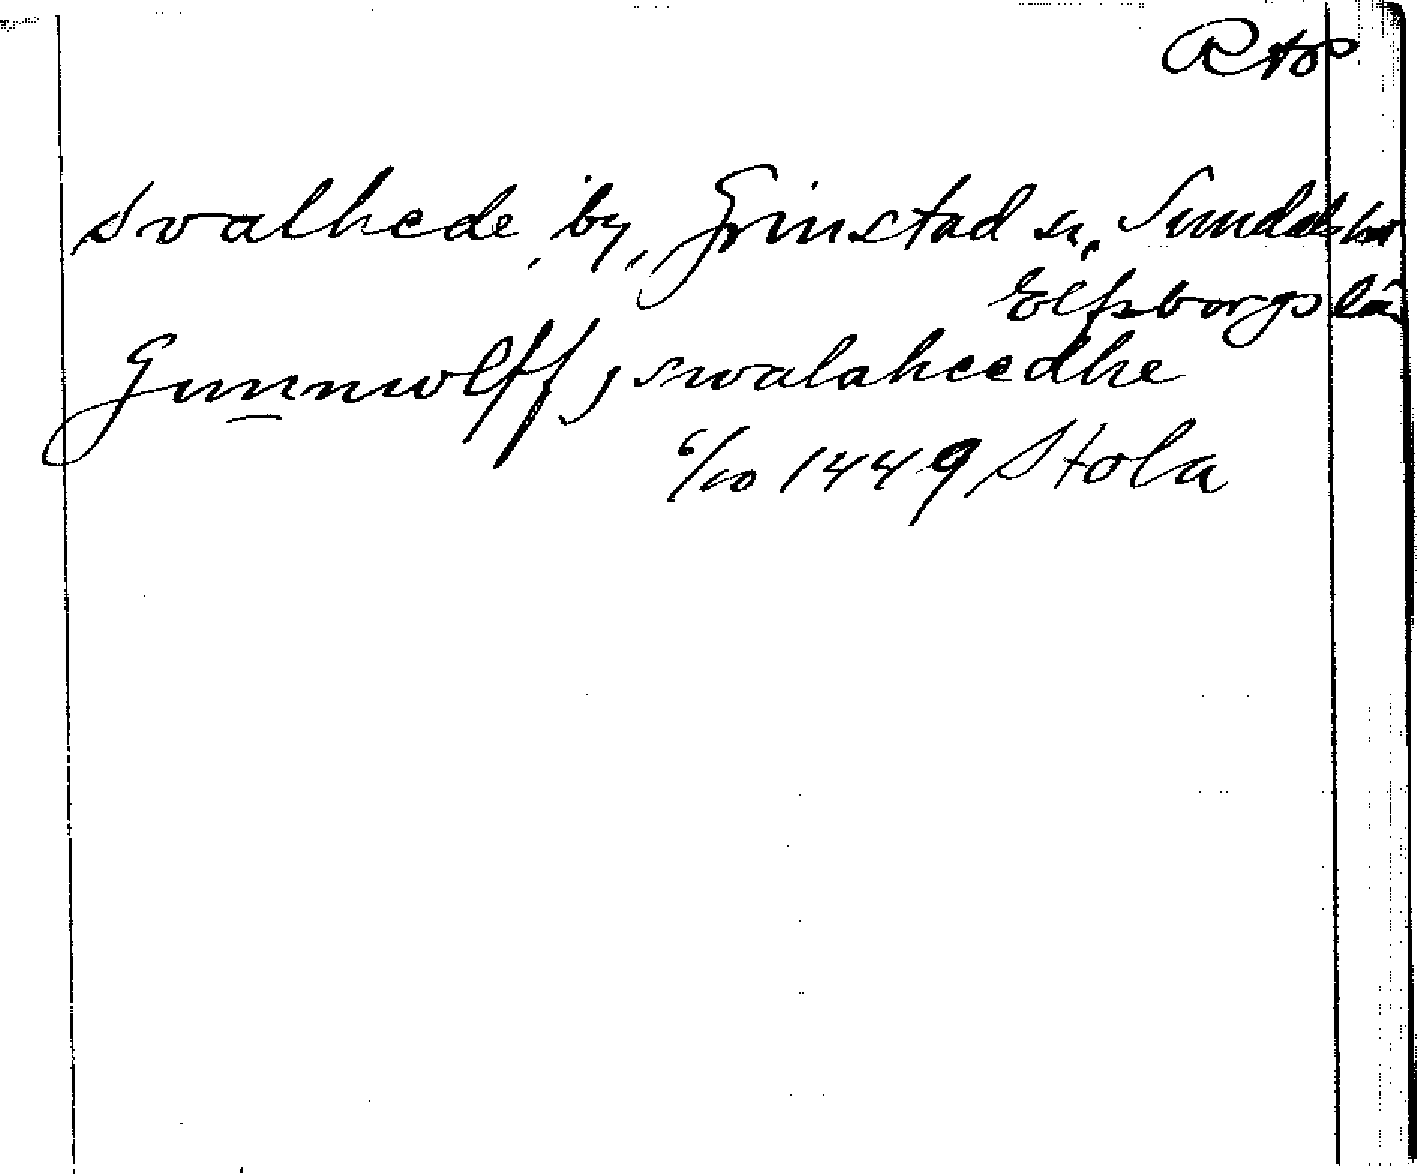 Svalhede, by, Grinstad sn, Sundals hd
Elfsborgs län
Gunnwlff j swalaheedhe
6/10 1449 Stola